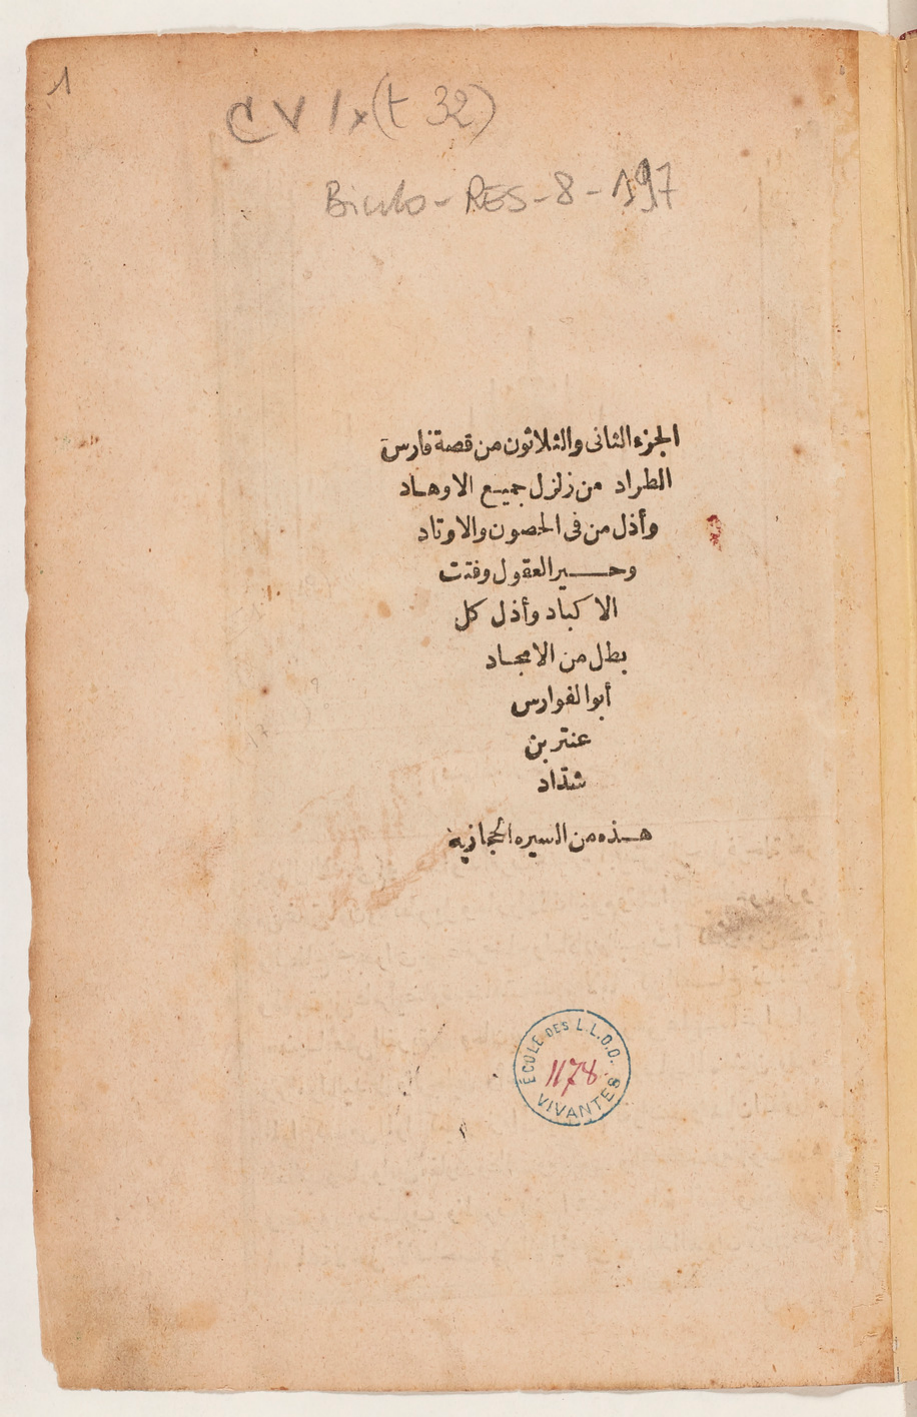 1
C V 1 x (t 32)
Biulo - RES - 8 - 197
الجزء الثانى والثلاثون من قصة فارس
الطراد من زلزل جميع الاوهاد
وأذل من فى الحصون والاوتاد
وحسير العقول وفتت
الاكباد وأذل كل
بطل من الامجاد
أبو الفوارس
عنتر بن
شدّاد
هذه من السيره الحجازيه
ÉCOLE DES L.L.O.O.
1178
VIVANTES